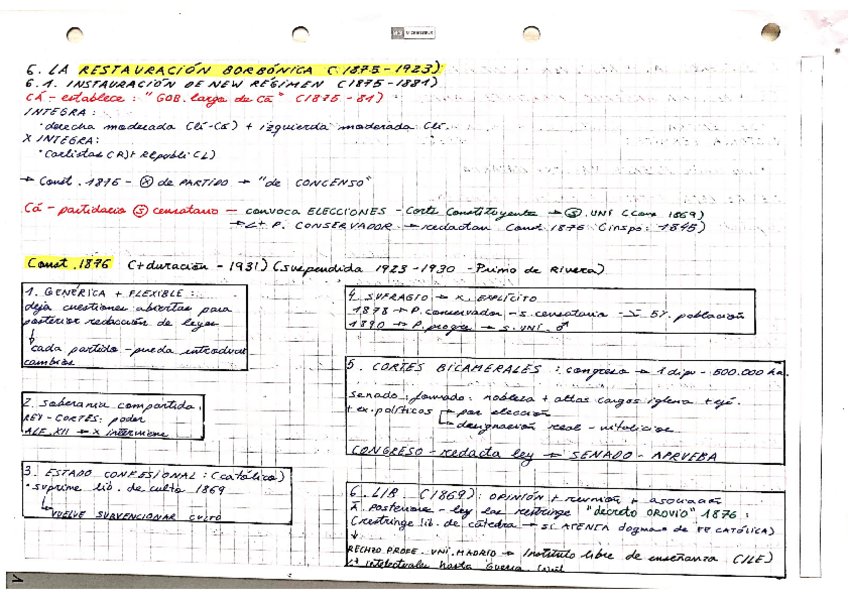 6. LA RESTAURACIÓN BORBÓNICA (1875-1923)
6.1. INSTAURACIÓN DE NEW RÉGIMEN (1875-1881)
Cá - establece: "GOB. largo de Cá" (1875-81)
INTEGRA:
· derecha moderada (li-Cá) + izquierda moderada Cli.
X INTEGRA:
· Carlistas (R)+ Républi (L)
→ Const. 1876 - ⓧ de PARTIDO → "de CONCENSO"
Cá - partidario Ⓢ censatario — convoca ELECCIONES - Corte Constituyente → Ⓢ. UNI (Cons 1869)
→ L+ P. CONSERVADOR → redactan Const 1876 (inspo: 1845)
Const. 1876 (+duración - 1931) (suspendida 1923-1930 - Primo de Rivera)
1. GENÉRICA + FLEXIBLE:
deja cuestiones abiertas para
posterior redacción de leyes
↓
cada partido - pueda introducir
cambios
2. soberanía compartida:
REY - CORTES: poder
ALF. XII → X interviene
3. ESTADO CONFESIONAL: (católica)
· suprime lib. de culto 1869
↳ VUELVE SUBVENCIONAR CULTO
4. SUFRAGIO → X. EXPLÍCITO
1878 → P. conservador - s. censatario - 5%. población
1890 → P. progre → s. UNI. ♂
5. CORTES BICAMERALES: congreso → 1 dipu - 500.000 ha.
senado: formado: nobleza + altos cargos iglesia + ejé.
+ ex. políticos → por elección
→ designación real - vitalicios
CONGRESO - redacta ley → SENADO - APRUEBA
6. LIB. (1869): OPINIÓN + reunión + asociación
X. posteriore - ley las restringe "decreto OROVIO" 1876:
(restringe lib. de cátedra → SI ATENTA dogmas de FE CATÓLICA)
↓
RECHZO PROFE. UNI. MADRID → Instituto libre de enseñanza (ILE)
L+ intelectuales hasta Guerra Civil